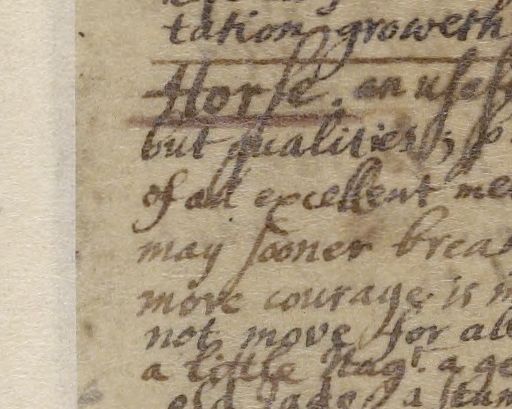 tation groweth
Horse. an usef
but qualities; so
of an excellent me
may sooner brea
more courage is m
not move for all
a little Nag. a ge
old Jade, a stum